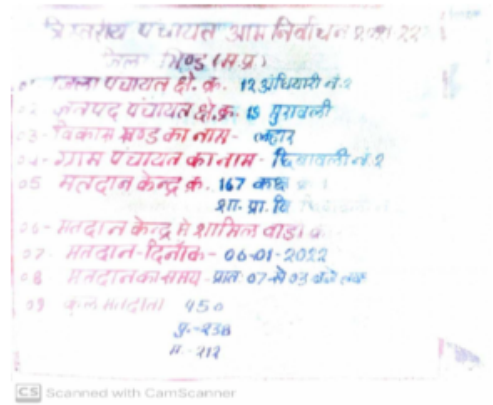 त्रिस्तरीय पंचायत आम निर्वाचन 2021-22
जिला भिण्ड (म.प्र.)
01 जिला पंचायत क्षे. क्र. 12 अंधियारी नं.2
02 जनपद पंचायत क्षे.क्र. 15 मुरावली
03- विकास खण्ड का नाम- लहार
04- ग्राम पंचायत का नाम- चिरावली नं.2
05 मतदान केन्द्र क्र. 167 कक्ष
शा. प्रा. वि
06- मतदान केन्द्र मे शामिल वार्डो
07- मतदान-दिनाँक- 06-01-2022
08 मतदान का समय-प्रात: 07 से 03 बजे तक
09 कुल मतदाता 450
पु.-238
म.-212
CS Scanned with CamScanner